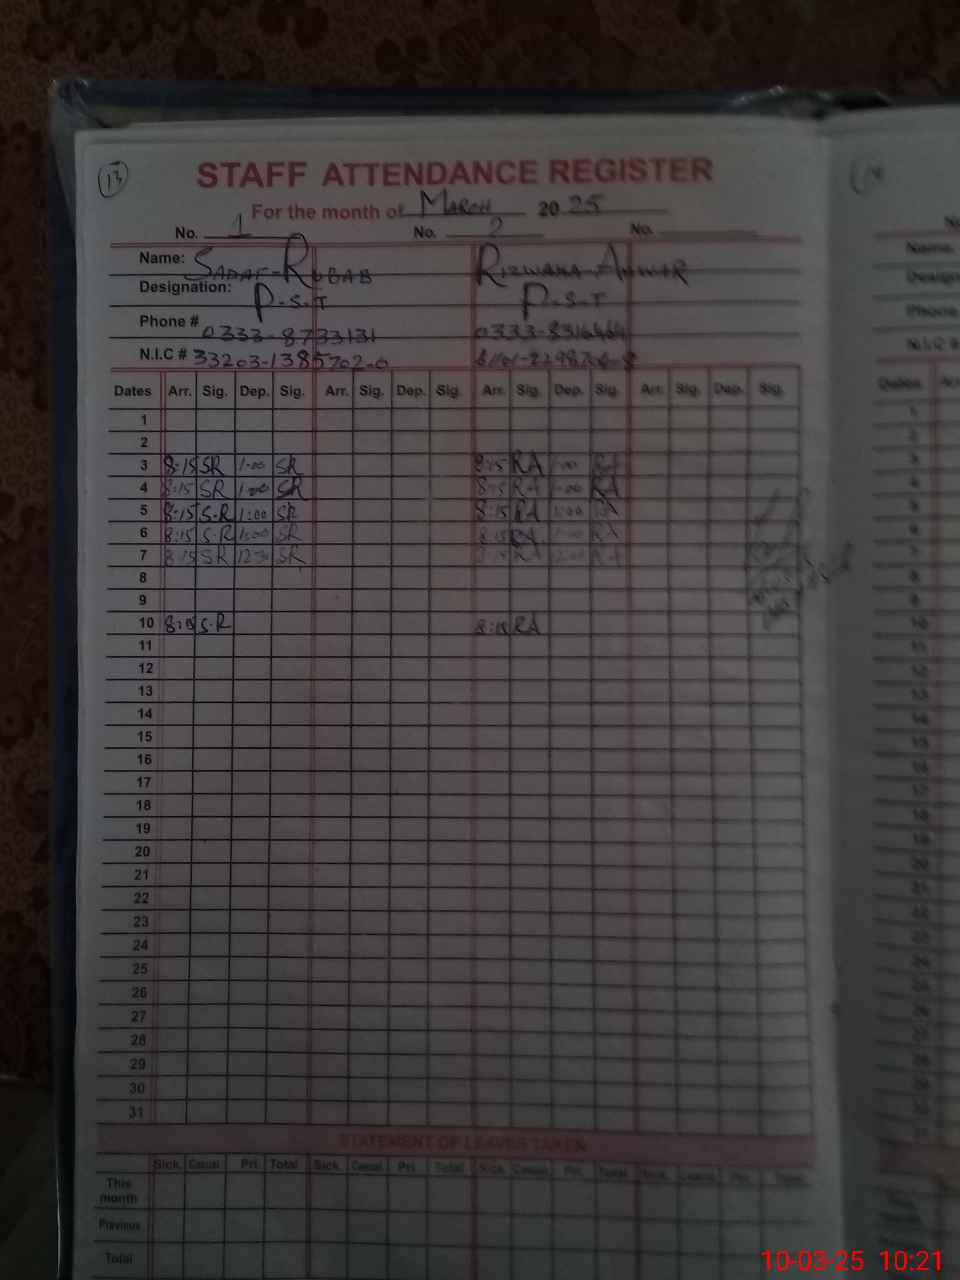 13
STAFF ATTENDANCE REGISTER
For the month of MARCH 20 25
No. 1 No. 2 No.
Name: SADAF-RUBAB RIZWANA-ANWAR
Designation: P-S-T P-S-T
Phone # 0333-8733131 0333-8316464
N.I.C # 33203-1385702-0
Dates Arr. Sig. Dep. Sig. Arr. Sig. Dep. Sig. Arr. Sig. Dep. Sig. Arr. Sig. Dep. Sig.
1
2
3 8:15 SR 1-00 SR 8:15 RA 1-00 RA
4 8:15 SR 1-00 SR 8:15 RA 1-00 RA
5 8:15 S-R 1:00 SR 8:15 RA 1:00 RA
6 8:15 S-R 1:00 SR 8:15 RA 1-00 RA
7 8:15 SR SR 8:15 RA RA
8
9
10 8:15 S-R 8:15 RA
11
12
13
14
15
16
17
18
19
20
21
22
23
24
25
26
27
28
29
30
31
STATEMENT OF LEAVES TAKEN
Sick. Casual Pri. Total Sick. Casual Pri. Total Sick. Casual Pri. Total Sick. Casual Pri. Total
This month
Previous
Total
10-03-25 10:21